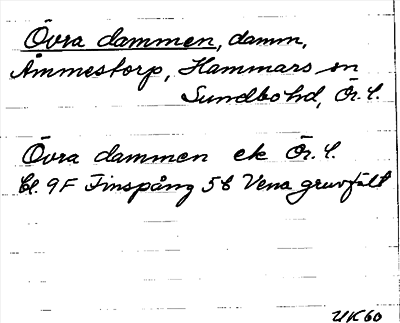 Övra dammen, damm,
Åmmestorp, Hammars sn
Sundbo hd, Ör. l.
Övra dammen ek Ör. l.
bl. 9F Finspång 5b Vena gruvfält
UK60